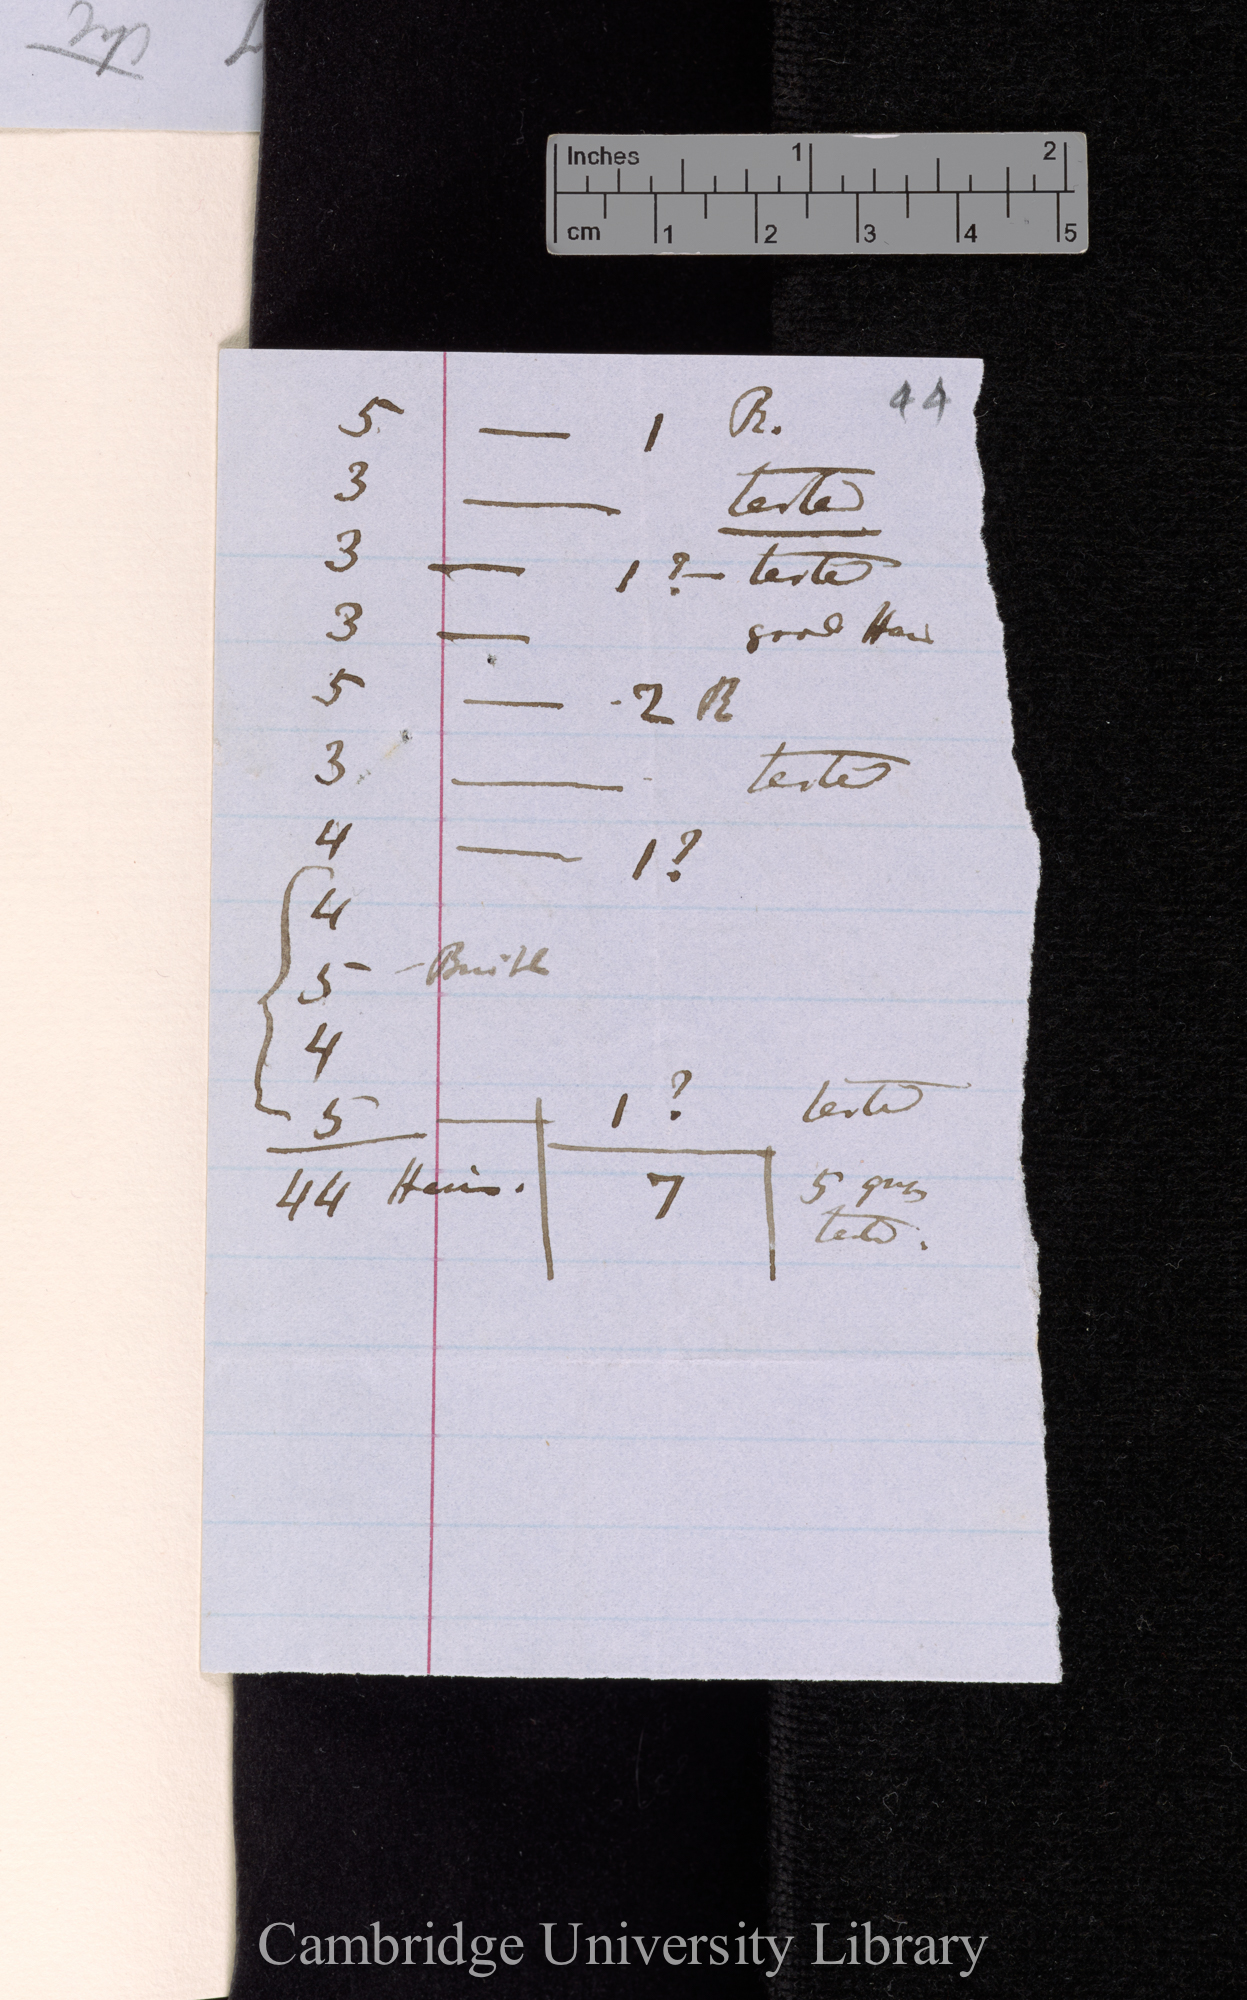 Inches 1 2
cm 1 2 3 4 5
44
5 — 1 R.
3 — tested
3 — 1 ? — tested
3 — good Hair
5 — 2 R
3 — tested
4 — 1 ?
4
5 —
4
5 — 1 ? tested
44 Hairs. 7 5
Cambridge University Library